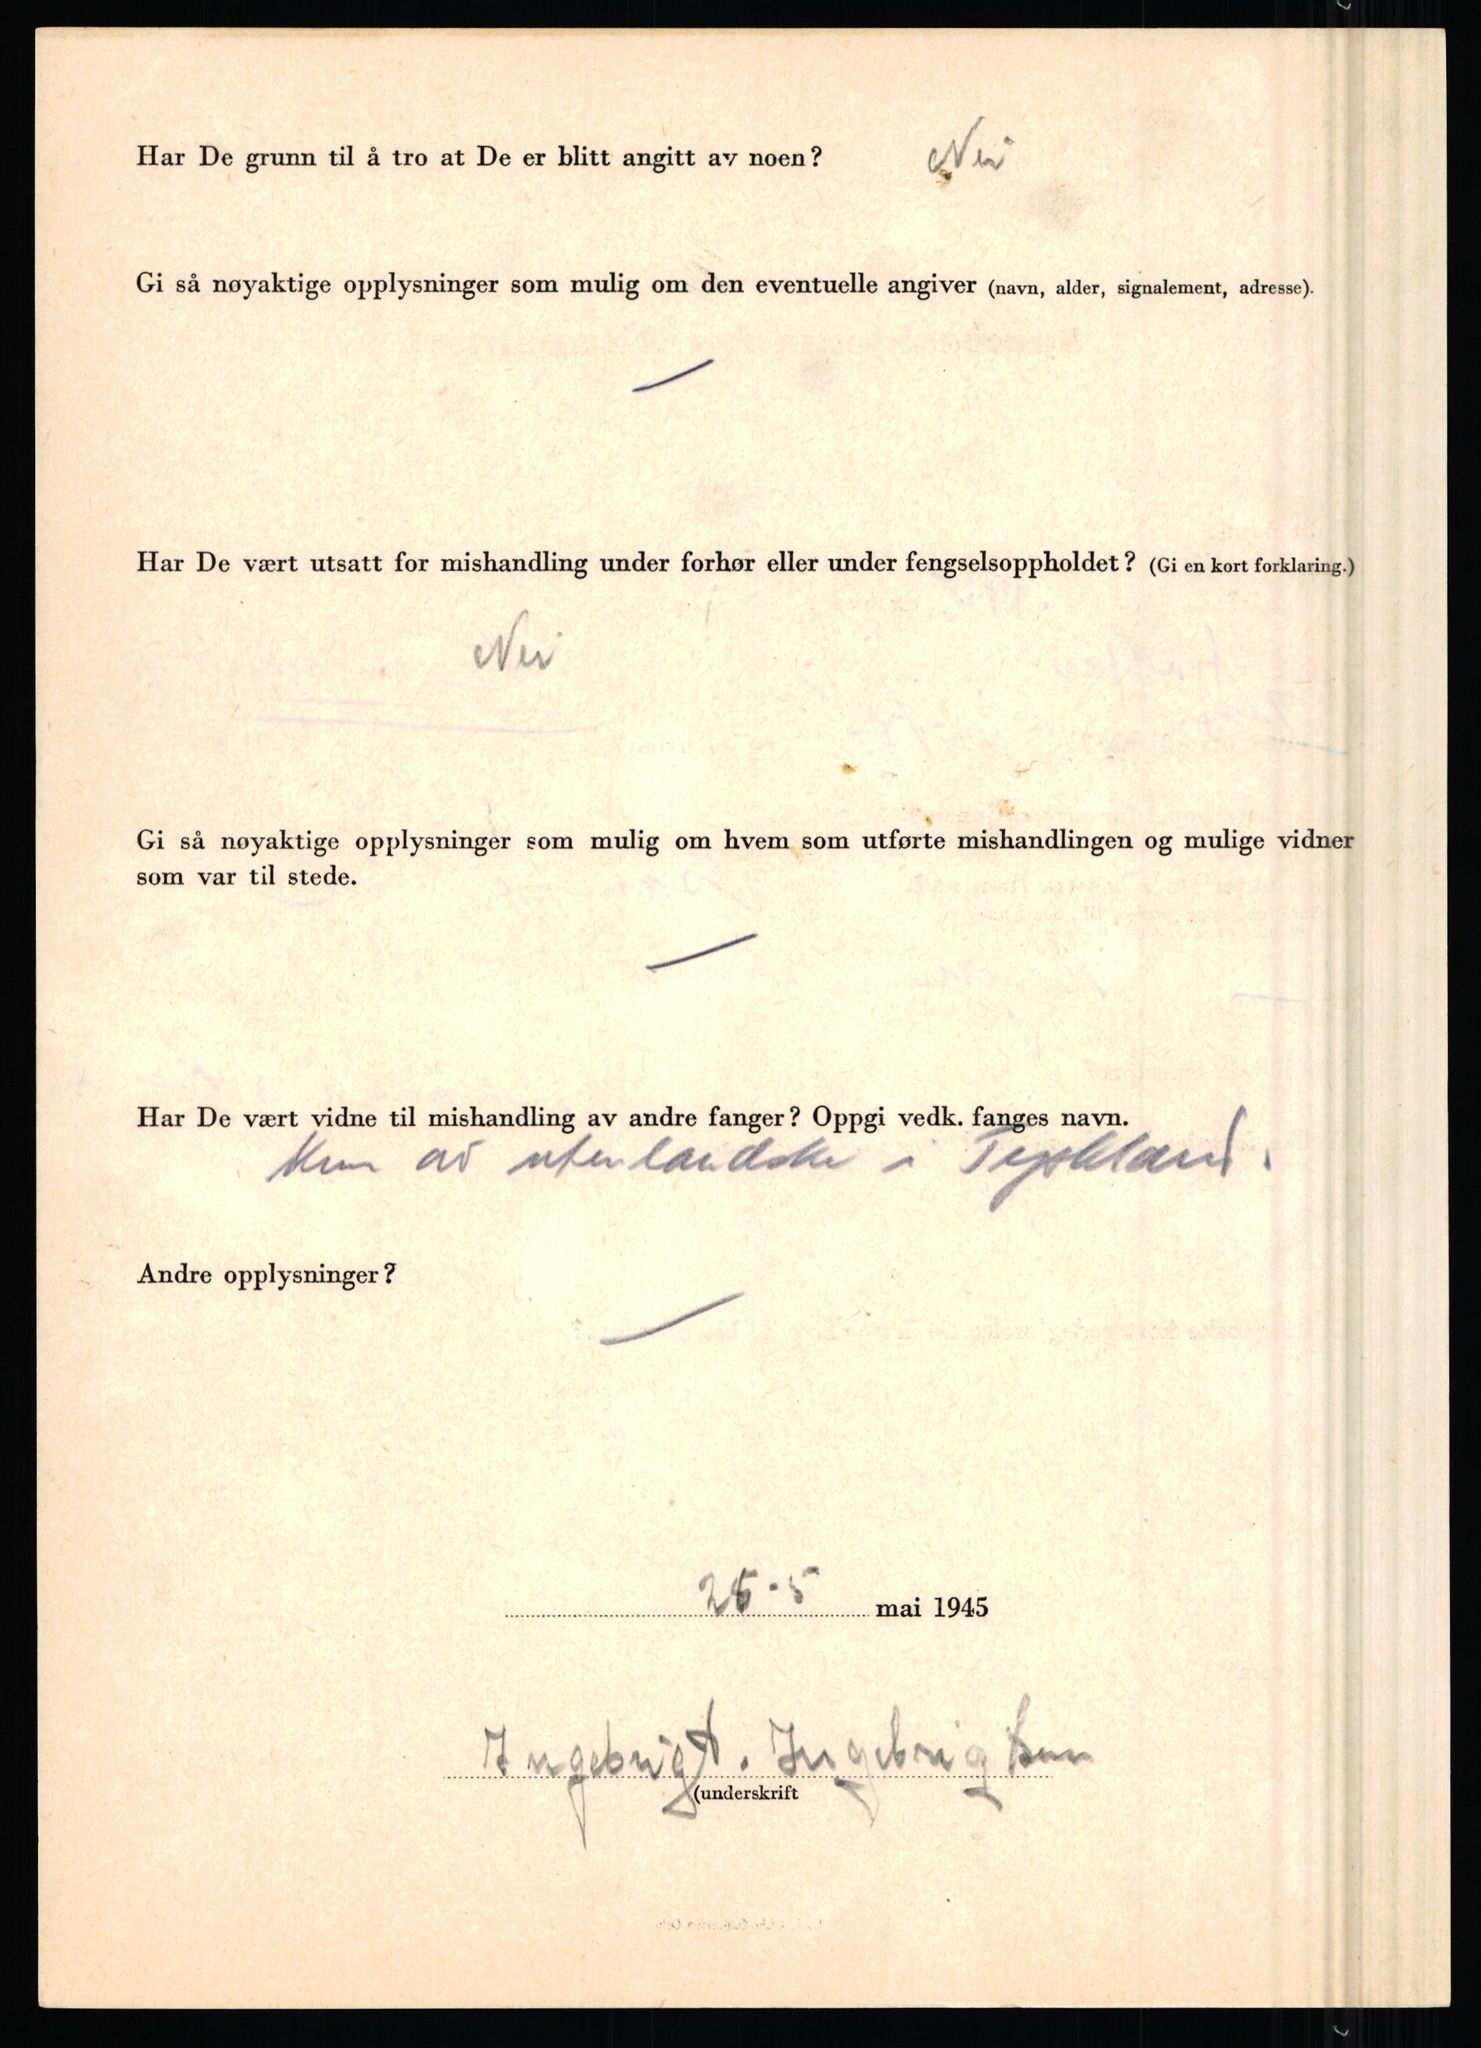 Har De grunn til å tro at De er blitt angitt av noen? Nei
Gi så nøyaktige opplysninger som mulig om den eventuelle angiver (navn, alder, signalement, adresse).
Har De vært utsatt for mishandling under forhør eller under fengselsoppholdet? (Gi en kort forklaring.)
Nei
Gi så nøyaktige opplysninger som mulig om hvem som utførte mishandlingen og mulige vidner
som var til stede.
Har De vært vidne til mishandling av andre fanger? Oppgi vedk. fanges navn.
Kun av utenlandske i Tyskland.
Andre opplysninger?
25-5 mai 1945
Ingebrigt. Ingebrigtsen
(underskrift